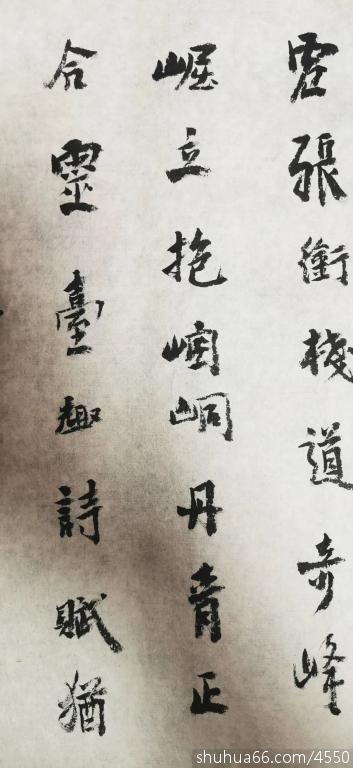 霓張衝棧道奇峰
崛立抱崓峒丹青正
合靈臺趣詩賦猶
shuhua66.com/4550